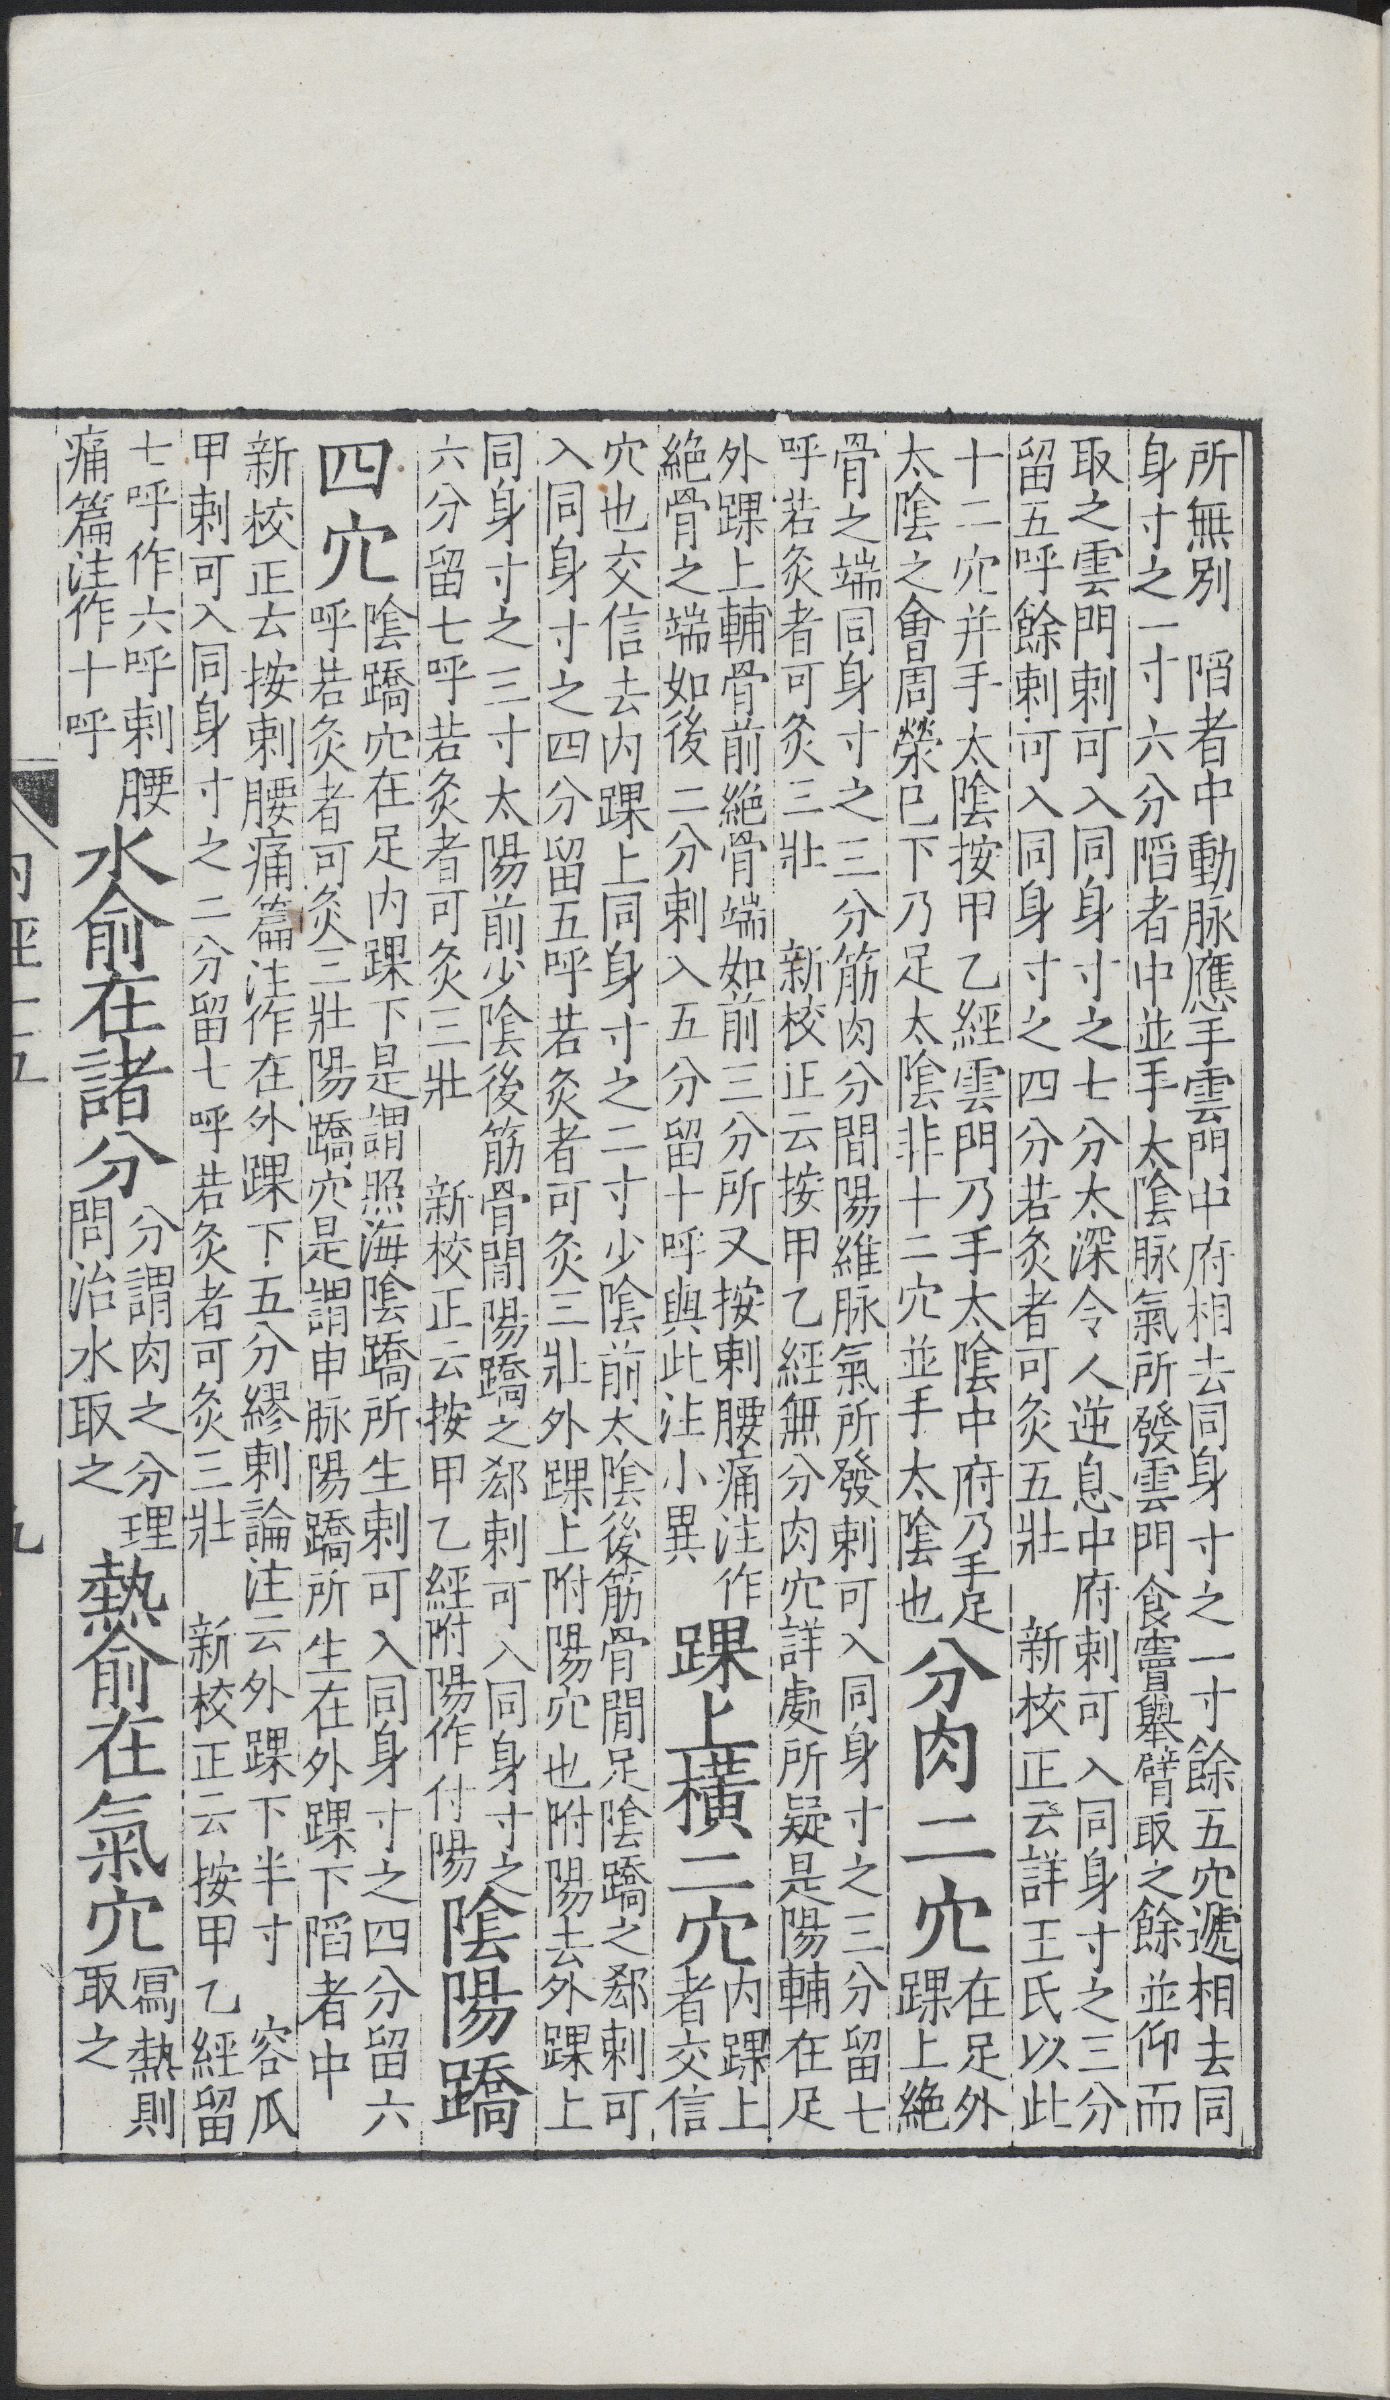 所無別　陷者中動脉應手雲門中府相去同身寸之一寸餘五穴遞相去同
身寸之一寸六分陷者中並手太陰脉氣所發雲門食竇舉臂取之餘並仰而
取之雲門刺可入同身寸之七分太深令人逆息中府刺可入同身寸之三分
留五呼餘刺可入同身寸之四分若灸者可灸五壯　新校正云詳王氏以此
十二穴并手太陰按甲乙經雲門乃手太陰中府乃手足
太陰之會周滎已下乃足太陰非十二穴並手太陰也
分肉二穴
在足外
踝上絶
骨之端同身寸之三分筋肉分間陽維脉氣所發刺可入同身寸之三分留七
呼若灸者可灸三壯　新校正云按甲乙經無分肉穴詳處所疑是陽輔在足
外踝上輔骨前絶骨端如前三分所又按刺腰痛注作
絶骨之端如後二分刺入五分留十呼與此注小異
踝上橫二穴
内踝上
者交信
穴也交信去内踝上同身寸之二寸少陰前太陰後筋骨間足陰蹻之郄刺可
入同身寸之四分留五呼若灸者可灸三壯外踝上附陽穴也附陽去外踝上
同身寸之三寸太陽前少陰後筋骨間陽蹻之郄刺可入同身寸之
六分留七呼若灸者可灸三壯　新校正云按甲乙經附陽作付陽
陰陽蹻
四穴
陰蹻穴在足内踝下是謂照海陰蹻所生刺可入同身寸之四分留六
呼若灸者可灸三壯陽蹻穴是謂申脉陽蹻所生在外踝下陷者中
新校正云按刺腰痛篇注作在外踝下五分繆刺論注云外踝下半寸　容瓜
甲刺可入同身寸之二分留七呼若灸者可灸三壯　新校正云按甲乙經留
七呼作六呼刺腰
痛篇注作十呼
水俞在諸分
分謂肉之分理
問治水取之
熱俞在氣穴
寫熱則
取之